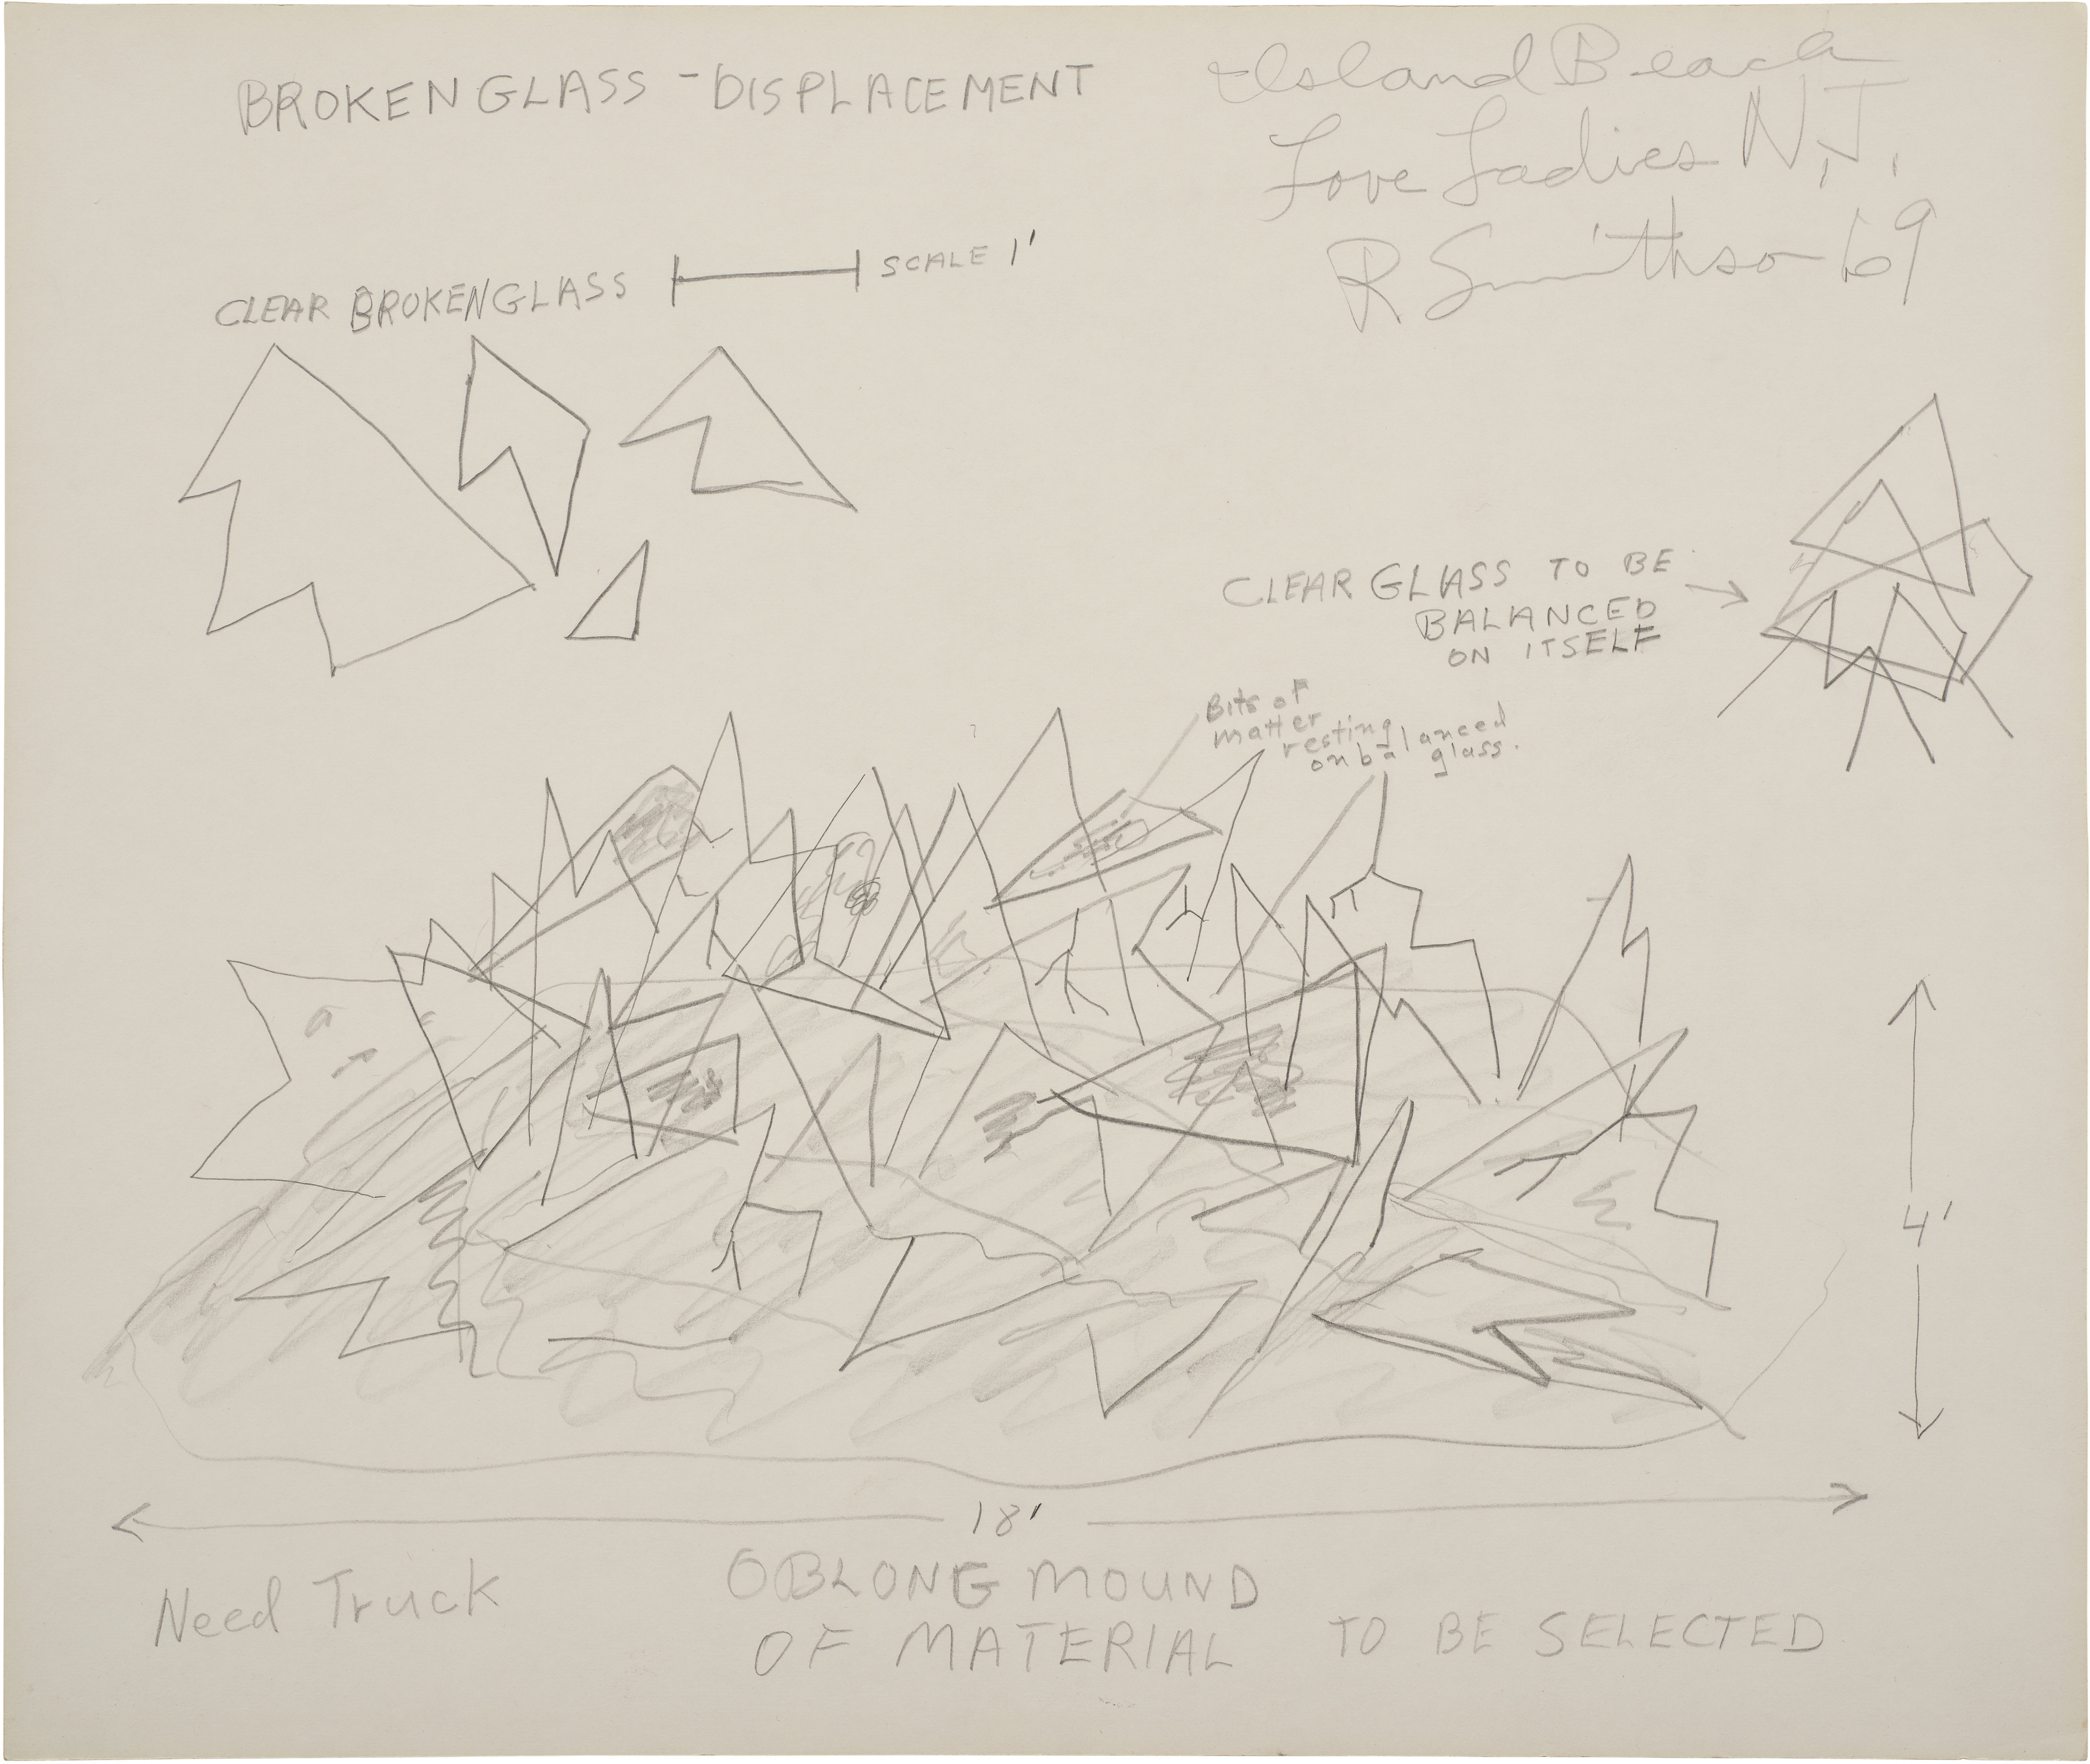 BROKEN GLASS - DISPLACEMENT
Island Beach
Love Ladies N.J.
R Smithson 69
CLEAR BROKEN GLASS
SCALE 1'
CLEAR GLASS TO BE
BALANCED
ON ITSELF
Bits of
matter
resting
on balanced
glass.
4'
18'
Need Truck
OBLONG MOUND
OF MATERIAL TO BE SELECTED